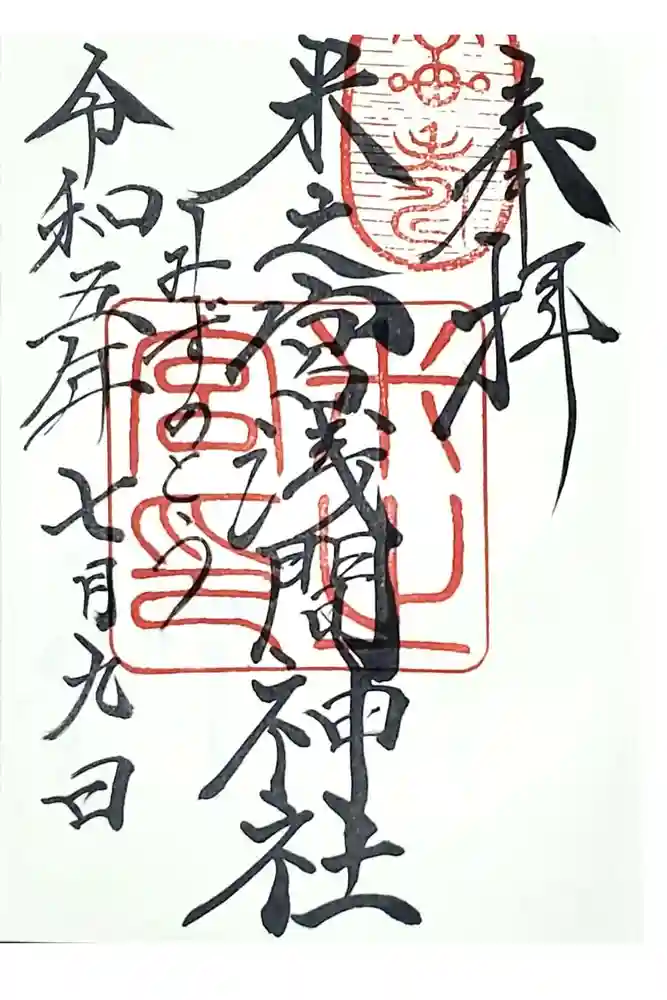 奉拝
米之宮浅間神社
みずのとう
令和五年七月九日
米之
宮印